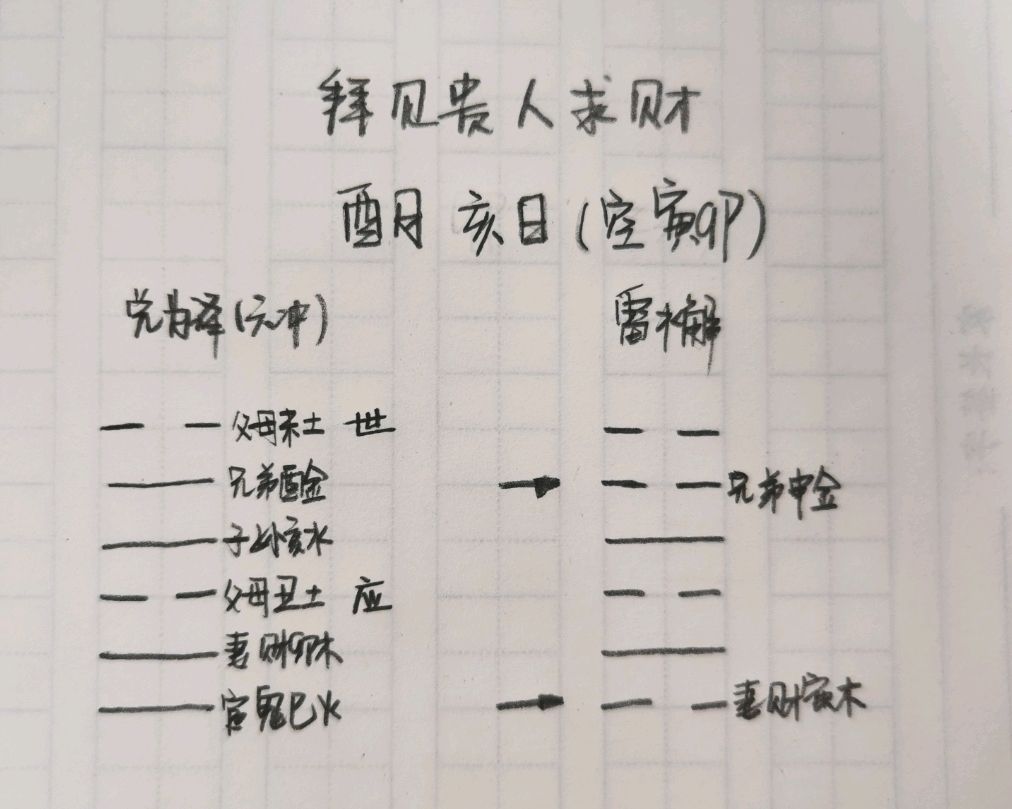 拜见贵人求财
酉月 亥日(空寅卯)
兑为泽(六冲) 雷水解
父母未土 世
兄弟酉金 兄弟申金
子孙亥水
父母丑土 应
妻财卯木
官鬼巳火 妻财寅木